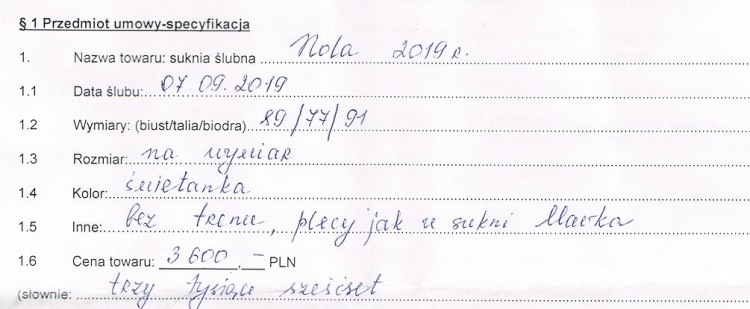 § 1 Przedmiot umowy-specyfikacja
1. Nazwa towaru: suknia ślubna Nola 2019 r.
1.1 Data ślubu: 07.09.2019
1.2 Wymiary: (biust/talia/biodra) 89/77/91
1.3 Rozmiar: na wymiar
1.4 Kolor: śmietanka
1.5 Inne: bez trenu, plecy jak w sukni
1.6 Cena towaru: 3 600,- PLN
(słownie: trzy tysiące sześćset